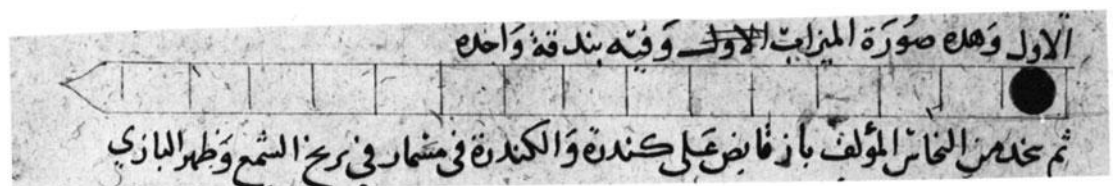 الاول وهذه صورة الميزاب الاول وفيه بندقة واحده
ثم يتخذ من النحاس المؤلف باز قابض على كندرة والكندرة في مسمار في بربخ الشمع وظهر البازي